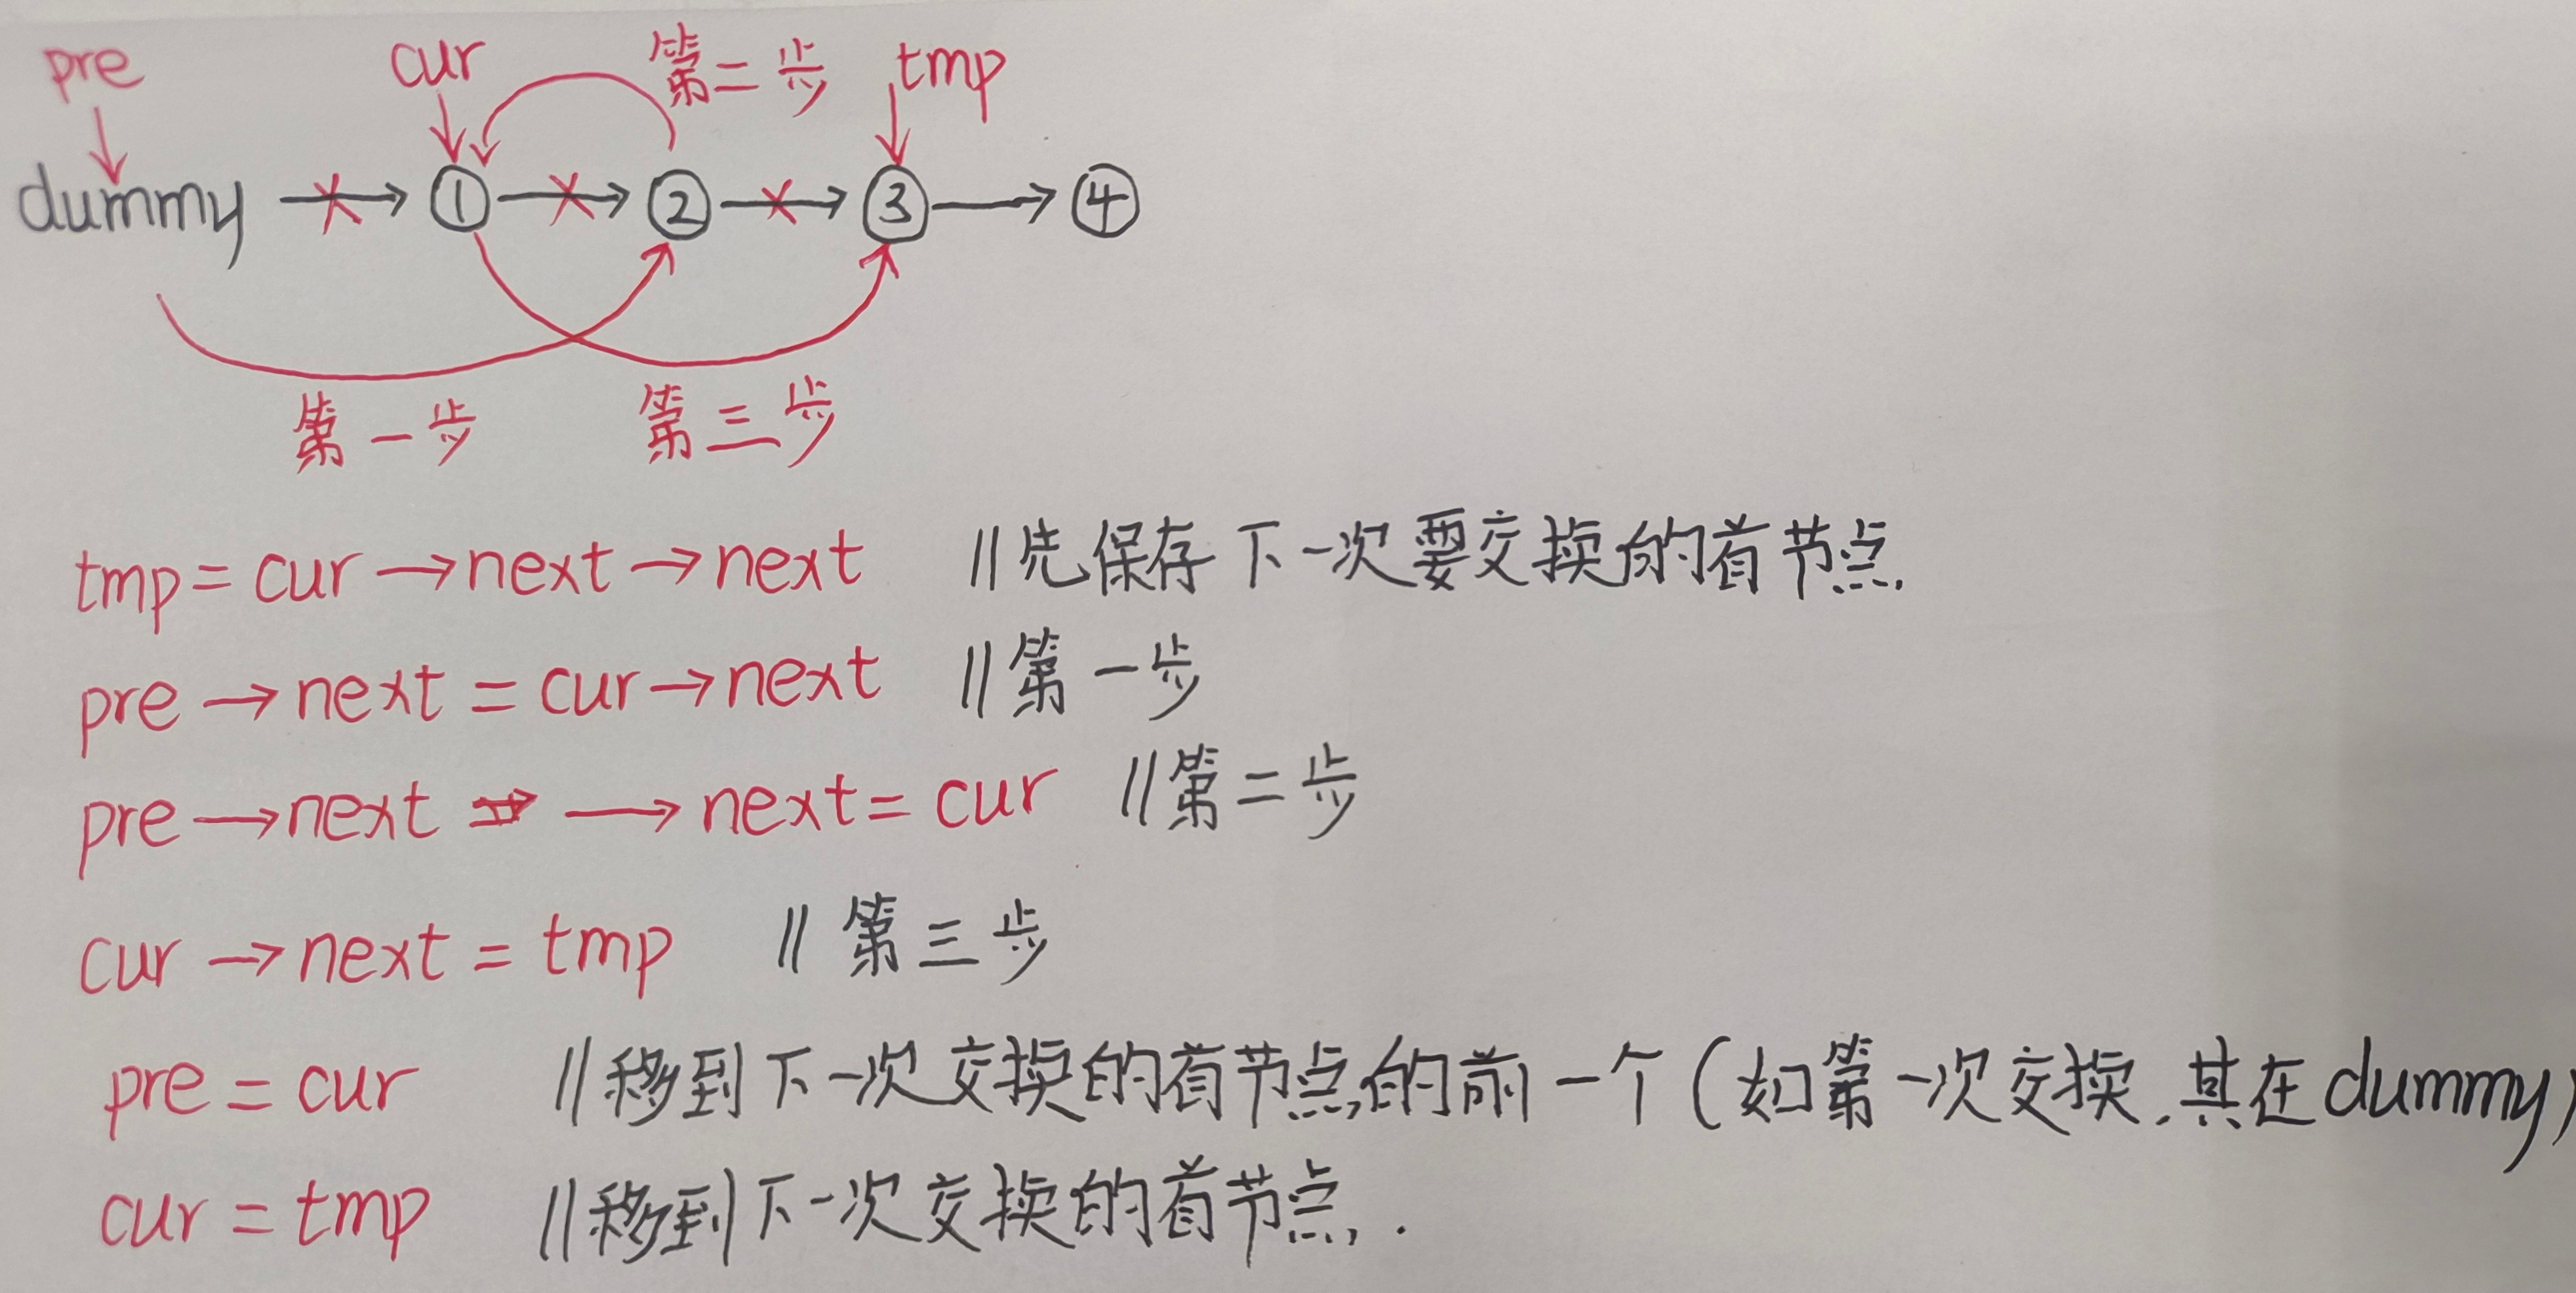 pre cur 第二步 tmp
dummy → ① → ② → ③ → ④
第一步 第三步
tmp = cur → next → next //先保存下一次要交换的首节点.
pre → next = cur → next //第一步
pre → next → next = cur //第二步
cur → next = tmp //第三步
pre = cur //移到下一次交换的首节点的前一个(如第一次交换.其在dummy)
cur = tmp //移到下一次交换的首节点.